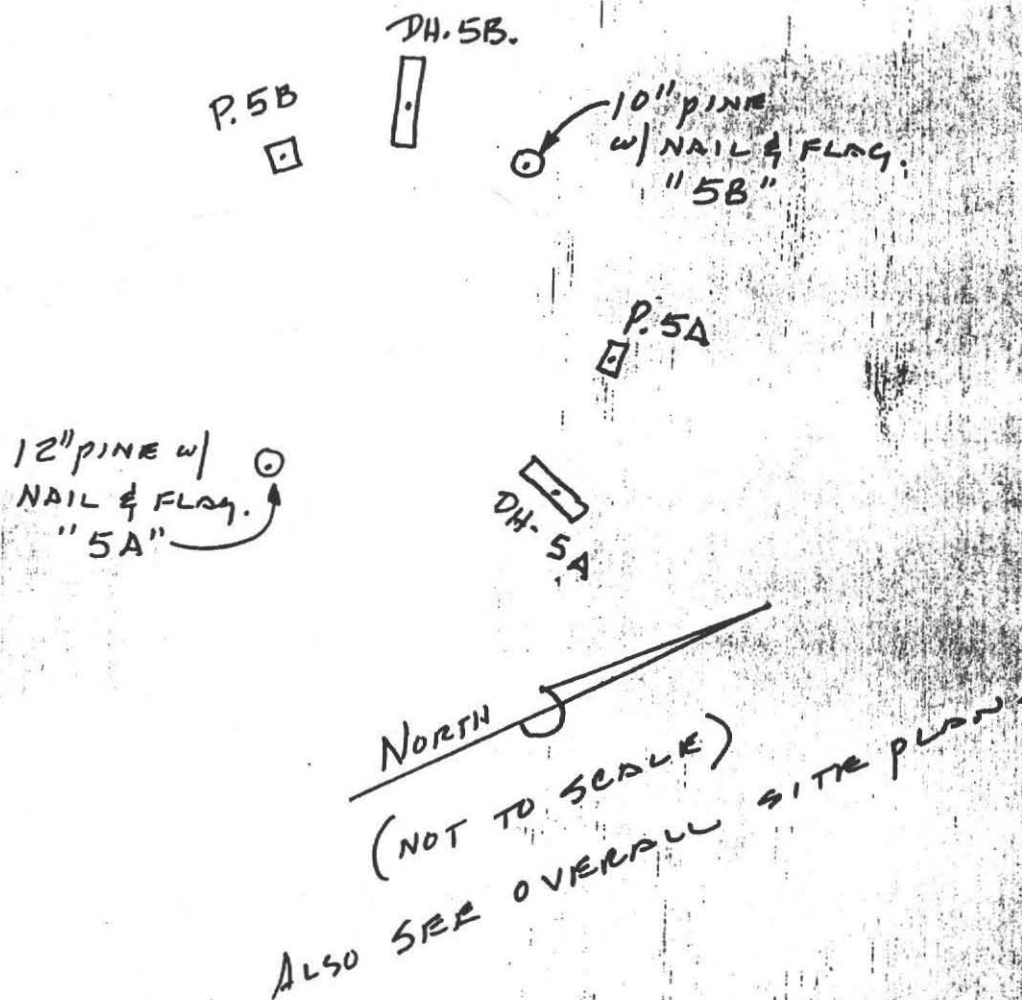 DH. 5B.
P. 5B
10" PINE
w/ NAIL & FLAG.
"5B"
P. 5A
12" PINE w/
NAIL & FLAG.
"5A"
DH. 5A
NORTH
(NOT TO SCALE)
ALSO SEE OVERALL SITE PLAN.